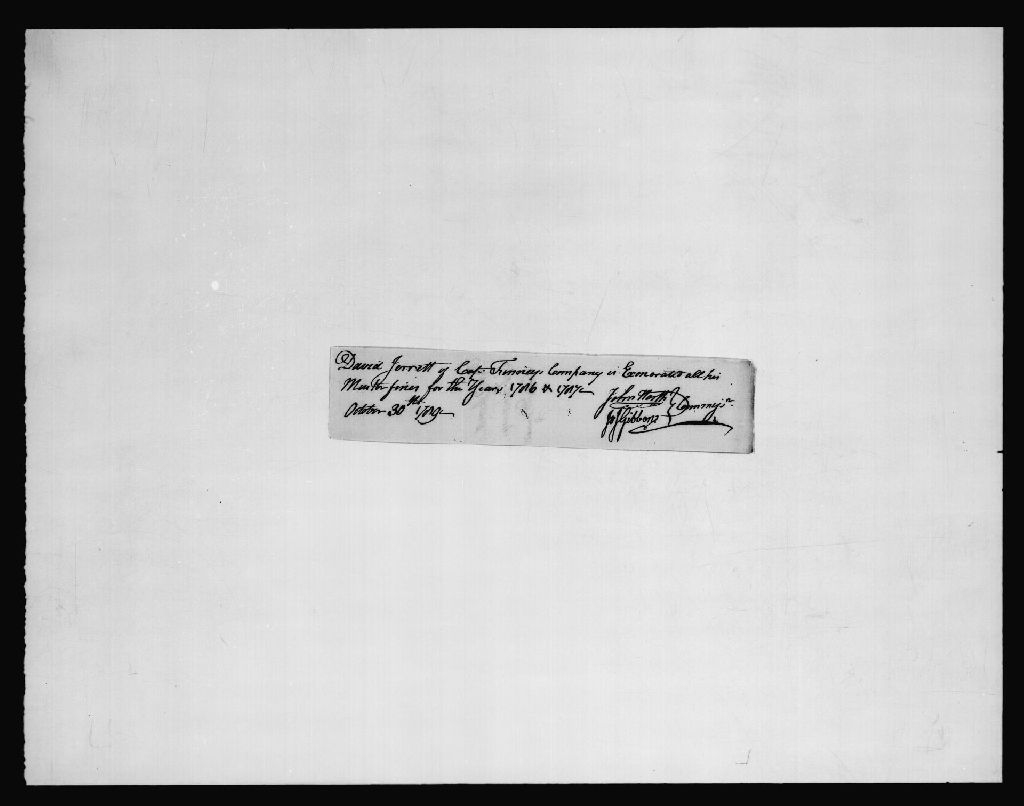 David Jerrett of Capt Finneys Company is Exonerated all his
Muster fines for the Years 1786 & 1787
October 30th 1789
John North
Js Gibbons
Commissrs